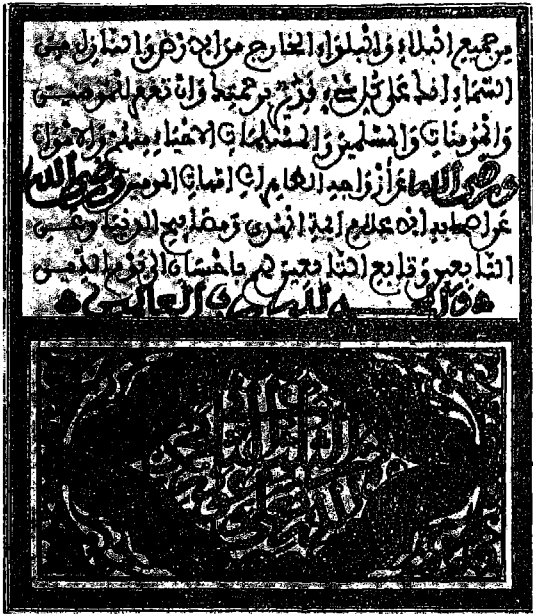 من جميع البلاء والبلواء الخارج من الارض والنازل من
السماء انك على كل شيء قدير برحمتك وان تغفر للمومنين
والمومنات والمسلمين والمسلمات الاحياء منهم والاموات
ورضي الله عن أزواجه الطاهرات امهات المومنين ورضي الله
عن اصحابه الاعلام ايمة الهدى ومصابيح الدنيا وعن
التابعين وتابع التابعين لهم باحسان الى يوم الدين
والحمد لله رب العالمين